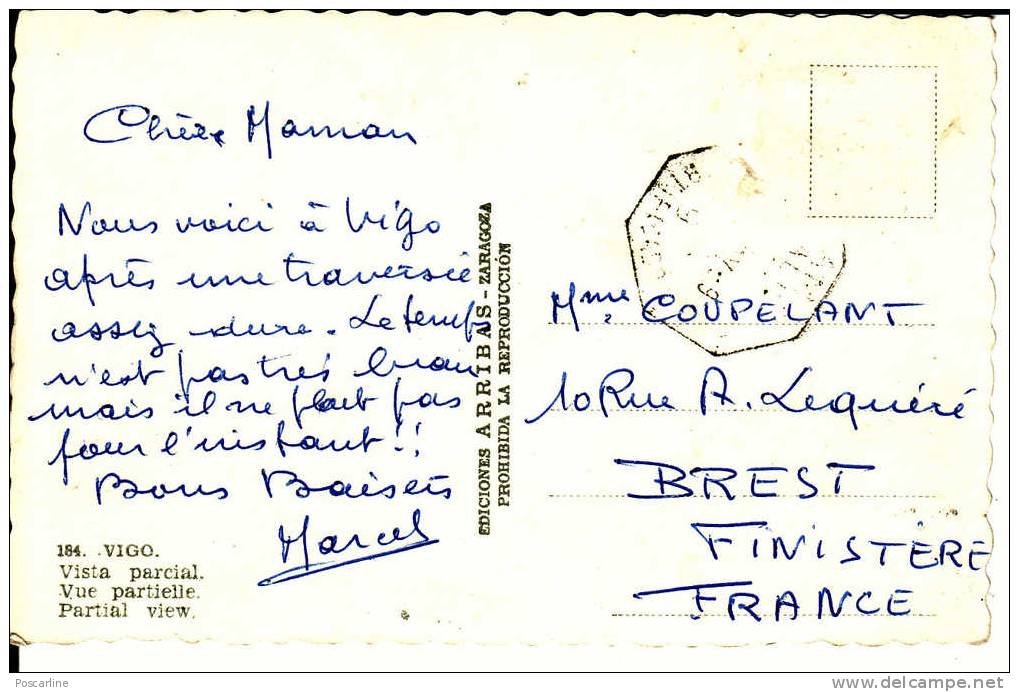 Chère Maman
Nous voici à Vigo
après une traversée
assez dure. Le temps
n'est pas très beau
mais il ne pleut pas
pour l'instant!!
Bons Baisers
Marcel
184. VIGO.
Vista parcial.
Vue partielle.
Partial view.
EDICIONES ARRIBAS - ZARAGOZA
PROHIBIDA LA REPRODUCCIÓN
Mme. COUPELANT
10 Rue A. Lequéré
BREST
FINISTÈRE
FRANCE
Poscarline
www.delcampe.net